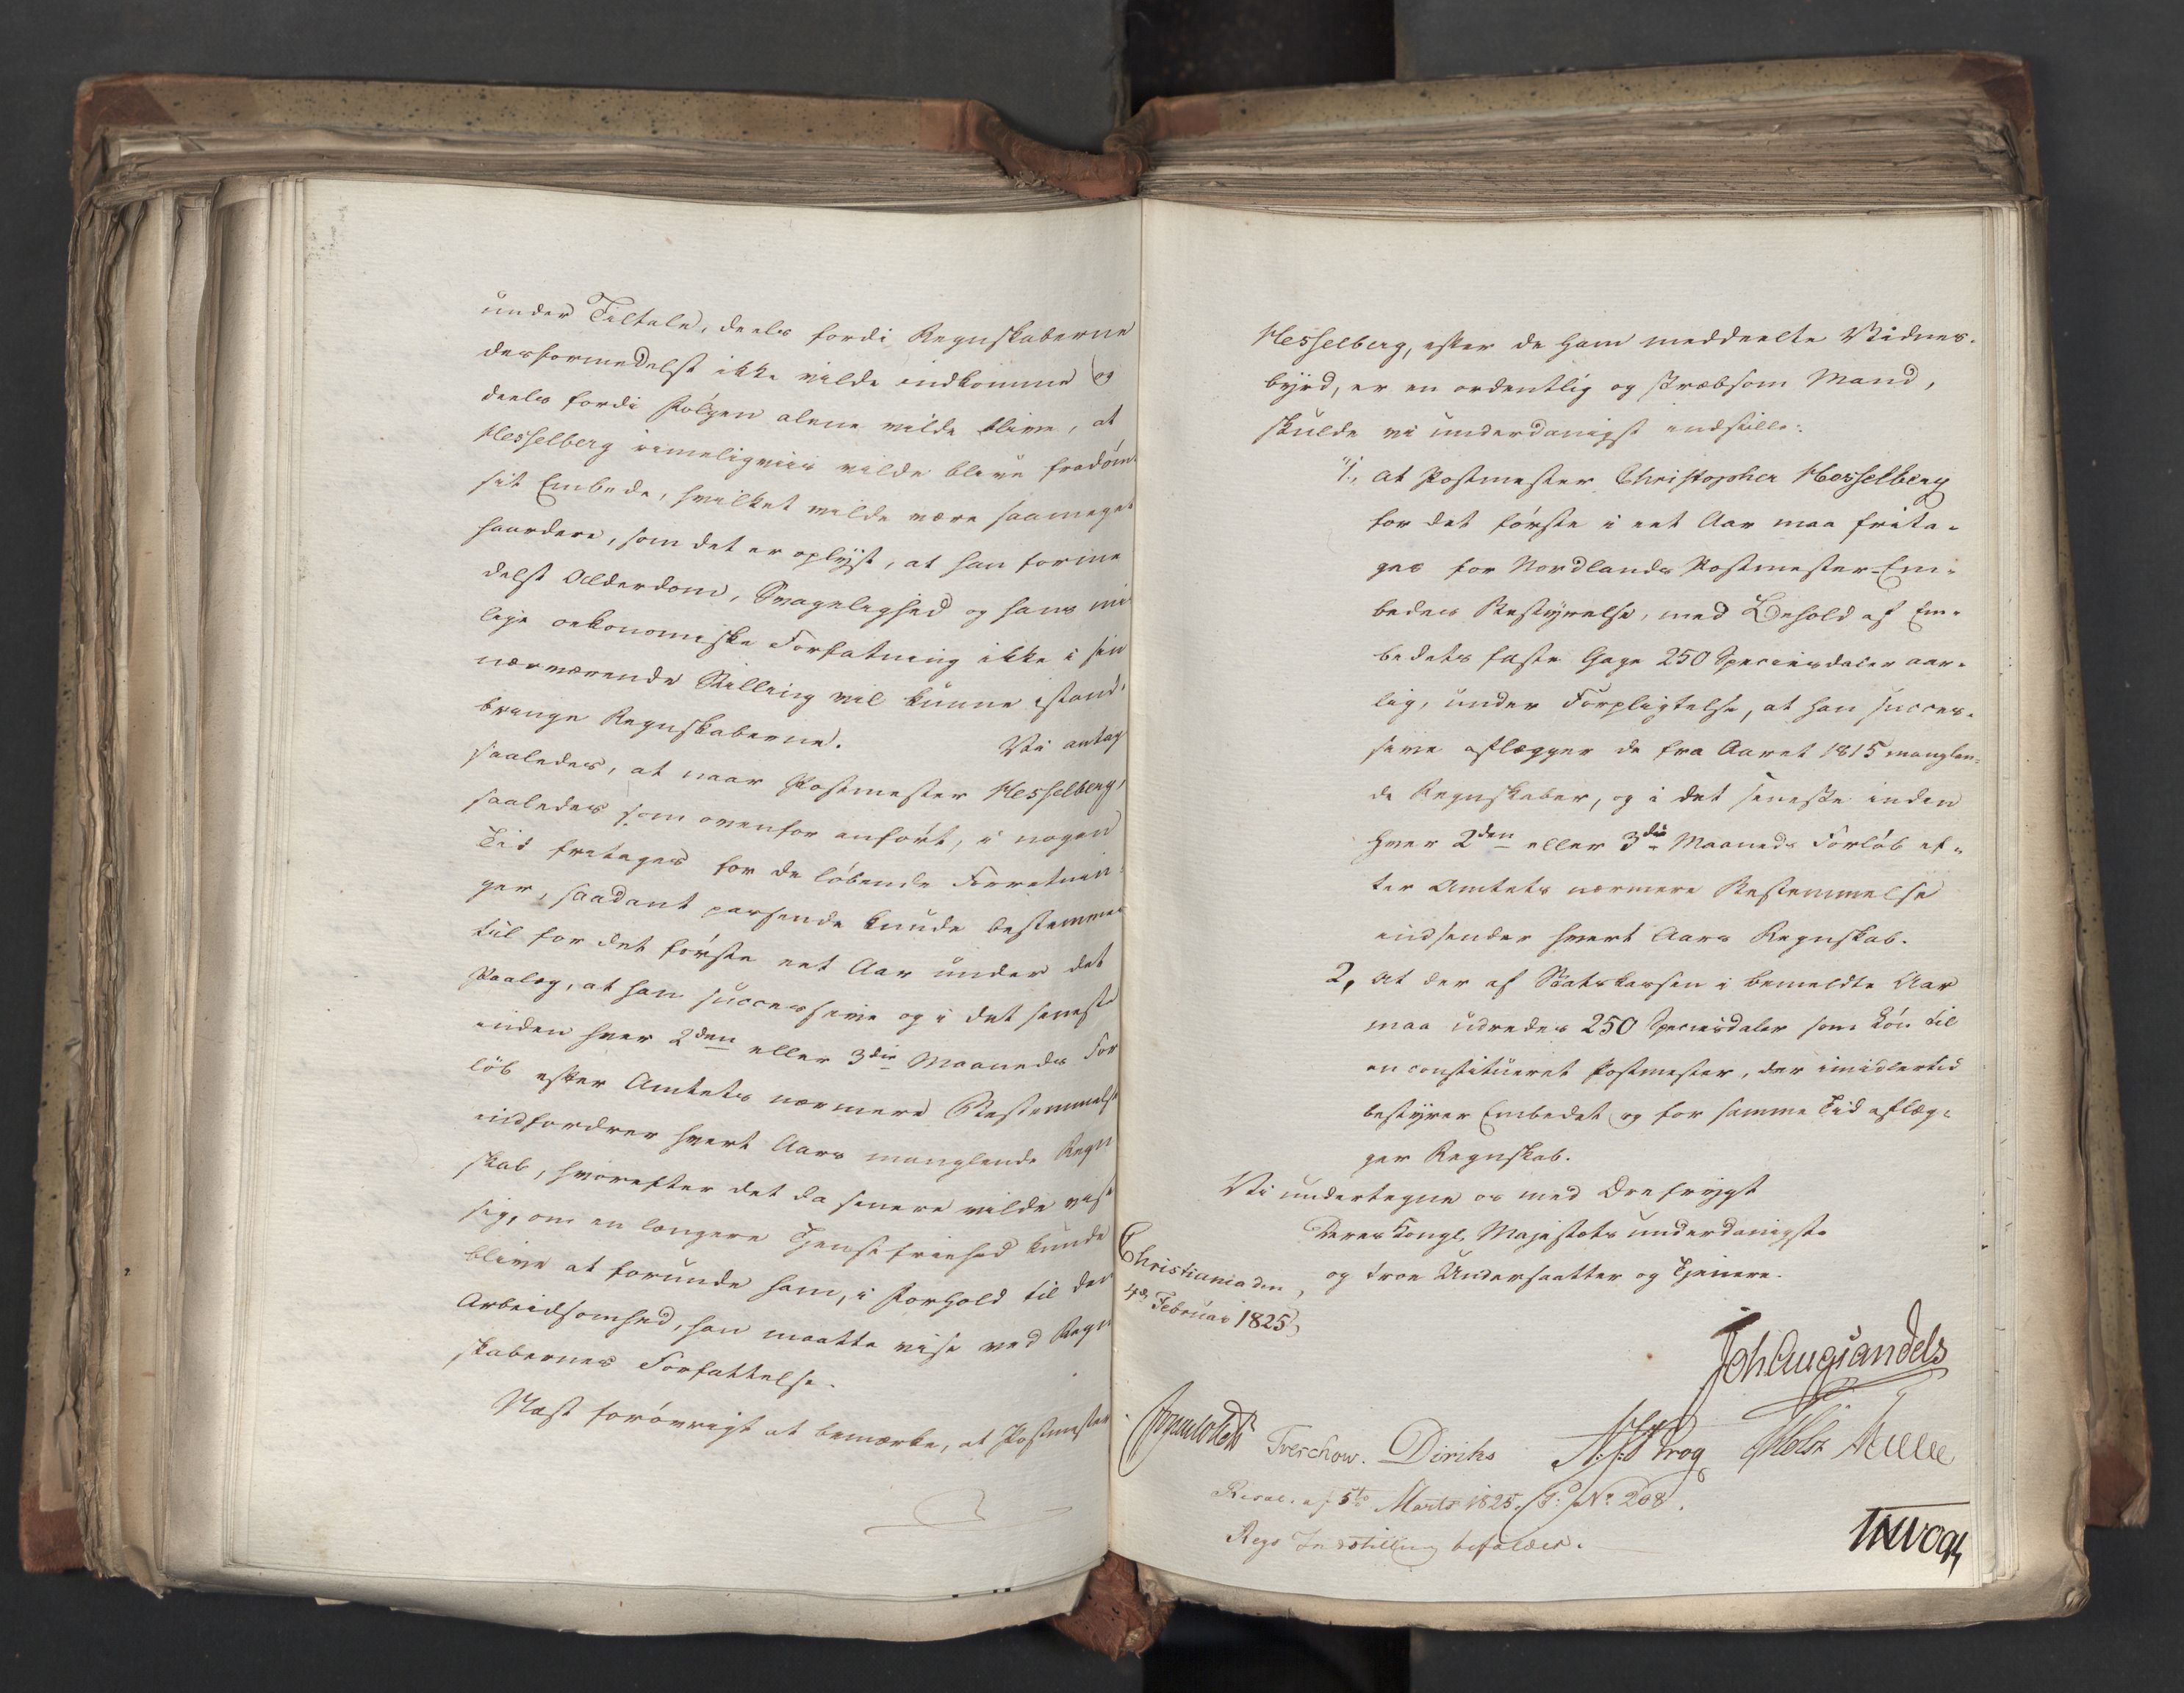 under Tiltale, deels fordi Regnskaberne
desformedelst ikke vilde indkomme og
deels fordi Følgen alene vilde blive, at
Hesselberg rimeligviis vilde blive fradømt
sit Embede, hvilket vilde være saameget
haardere, som det er oplyst, at han forme
delst Alderdom, Svagelighed og hans
lige oekonomiske Forfatning ikke i sin
nærværende Stilling vil kunne istand-
bringe Regnskaberne. Vi antag
saaledes, at naar Postmester Hesselberg,
saaledes som ovenfor anført, i nogen
Tid fritages for de løbende Forretnin-
ger, saadant passende kunde bestemmes
til for det første eet Aar under det
Paalæg, at han successive og i det seneste
inden hver 2den eller 3die Maaneds For
løb efter Amtets nærmere Bestemmelse
indfordrer hvert Aars manglende Regn
skab, hvorefter det da senere vilde vise
sig, om en længere Tjenstfrihed kunde
blive at forunde ham, i Forhold til den
Arbeidsomhed, han maatte vise ved Regn
skabernes Forfattelse.
Næst forøvrigt at bemærke, at Postmester
Hesselberg, efter de ham meddeelte Vidnes-
byrd, er en ordentlig og stræbsom Mand,
skulde vi underdanigst indstille:
1, at Postmester Christopher Hesselberg
for det første i eet Aar maa frita-
ges for Nordlands Postmester-Em-
bedes Bestyrelse, med Behold af Em-
bedets faste Gage 250 Speciesdaler aar-
lig, under Forpligtelse, at han succes-
sive aflægger de fra Aaret 1815 manglen-
de Regnskaber, og i det seneste inden
hver 2den eller 3die Maaneds Forløb ef-
ter Amtets nærmere Bestemmelse
indsender hvert Aars Regnskab.
2, at der af Statskassen i bemeldte Aar
maa udredes 250 Speciesdaler som Løn til
en constitueret Postmester, der imidlertid
bestyrer Embedet og for samme Tid aflæg-
ger Regnskab.
Vi undertegne os med Ærefrygt
Deres Kongl. Majestæts underdanigste
og troe Undersaatter og Tjenere.
Christiania den
4de Februar 1825,
Joh Aug Sandels
Treschow. Diriks Krog Holst
Resol. af 5te Marts 1825. No 208.
Regs Indstilling bifaldes.